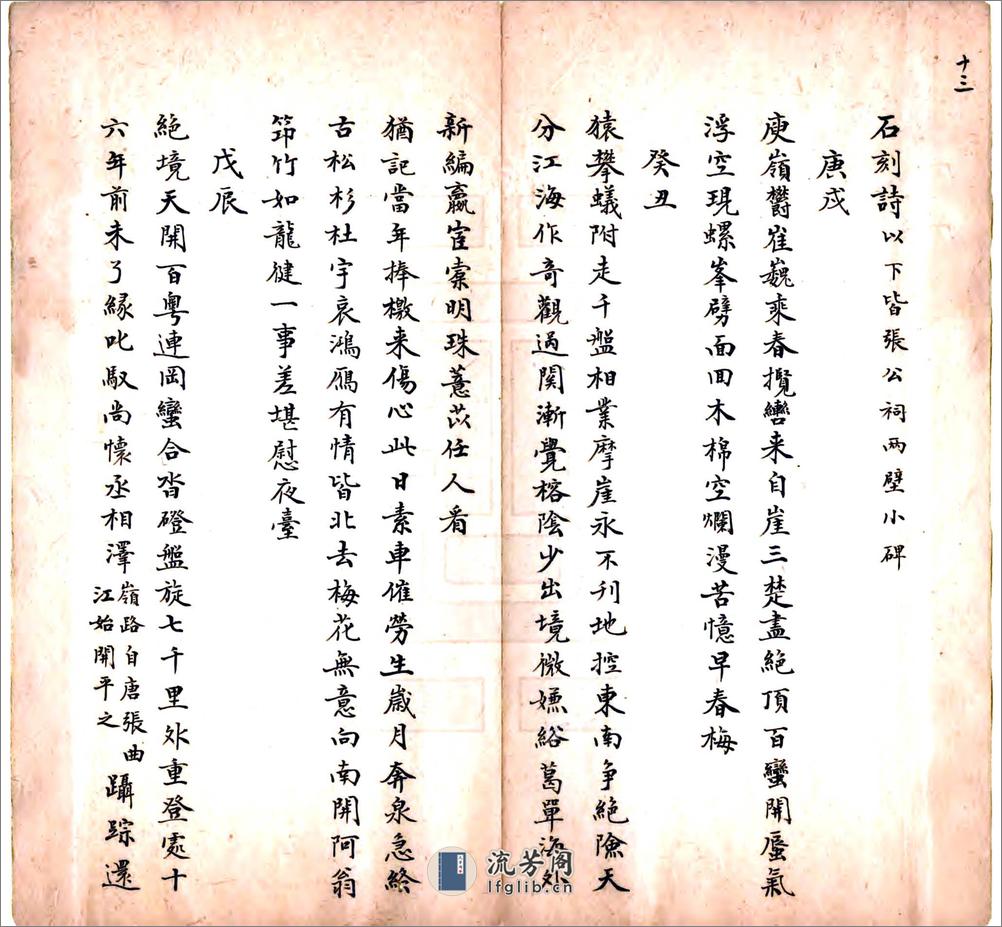 十三
石刻詩以下皆張公祠兩壁小碑
庚戌
庾嶺欝崔巍乘春攬轡来自崖三楚盡絶頂百蠻開蜃氣
浮空現螺峯劈面回木棉空爛漫苦憶早春梅
癸丑
猿攀蟻附走千盤相業摩崖永不刋地控東南争絶險天
分江海作奇觀過関漸覺榕陰少出境微嫌綌葛單海外
新編嬴宦橐明珠薏苡任人看
猶記當年捧檄来傷心此日素車催勞生嵗月奔泉急終
古松杉杜宇哀鴻鴈有情皆北去梅花無意向南開阿翁
筇竹如龍健一事差堪慰夜臺
戊辰
絶境天開百粤連岡蠻合沓磴盤旋七千里外重登處十
六年前未了縁叱馭尚懷丞相澤嶺路自唐張曲江始開平之躡踪還
流芳阁
lfglib.cn